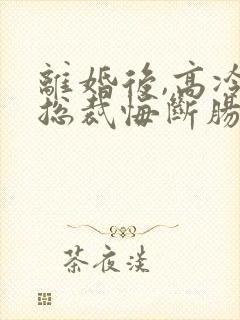 離婚後,高冷
總裁悔斷腸
茶夜淡